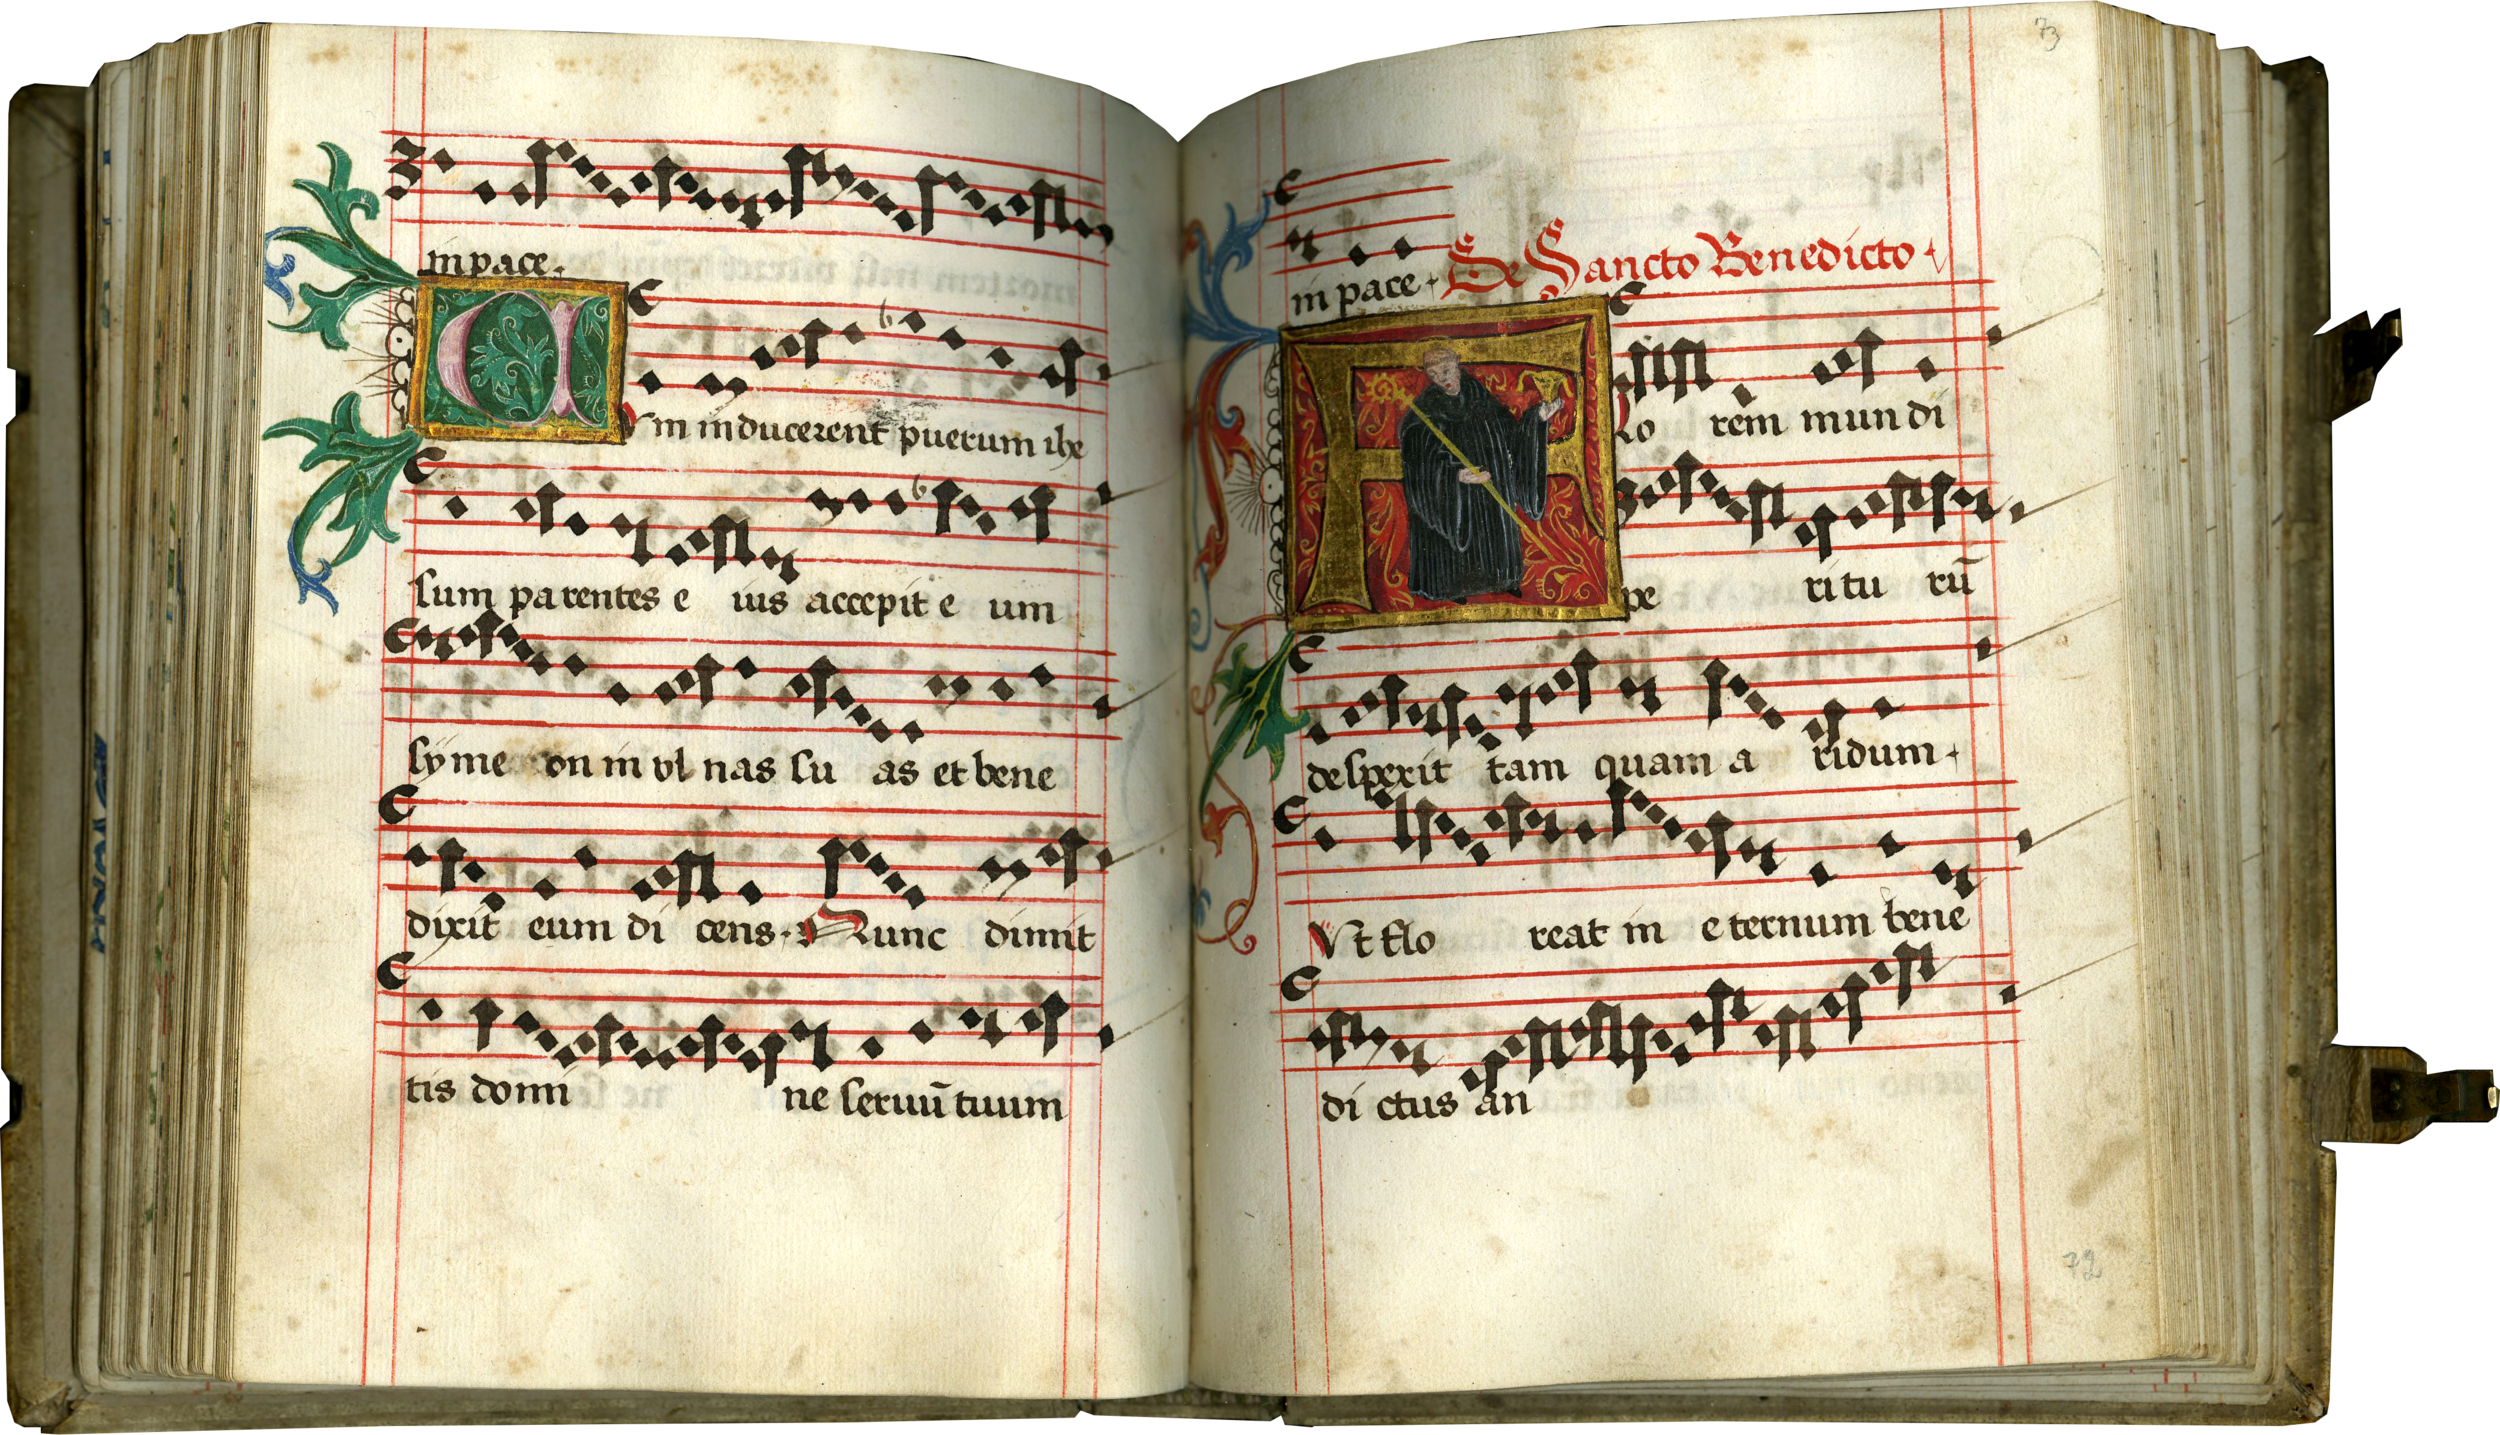 in pace.
Vm inducerent puerum ihe
sum parentes e ius accepit e um
syme on in vl nas su as et bene
dixit eum di cens. Nunc dimit
tis domi ne seruū tuum
73
in pace. De Sancto Benedicto.
Flo rem mun di
pe ri tu rū
despexit tam quam a ridum.
Vt flo reat in e ternum bene
di ctus an
72